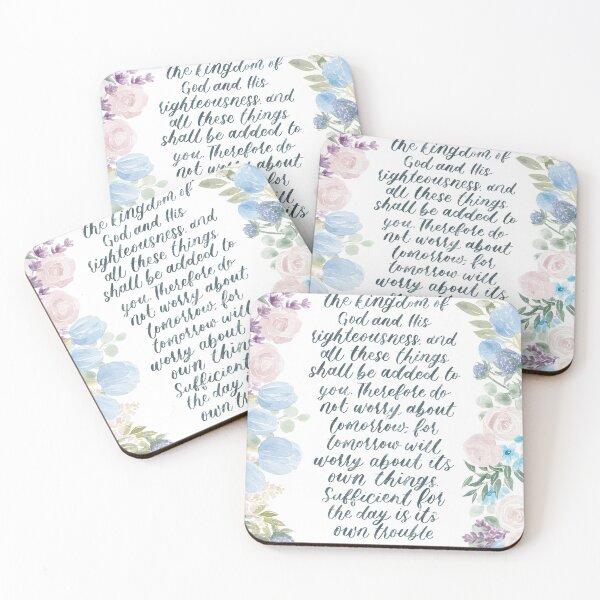 the kingdom of
God and His
righteousness, and
all these things
shall be added to
you. Therefore do
not worry about
for
the kingdom of
God and His
righteousness, and
all these things
shall be added to
you. Therefore do
not worry about
tomorrow, for
tomorrow will
worry about its
the kingdom of
God and His
righteousness, and
all these things
shall be added to
you. Therefore do
not worry about
tomorrow, for
tomorrow will
worry about
own things.
Sufficient
the day
own
the kingdom of
God and His
righteousness, and
all these things
shall be added to
you. Therefore do
not worry about
tomorrow, for
tomorrow will
worry about its
own things.
Sufficient for
the day is its
own trouble